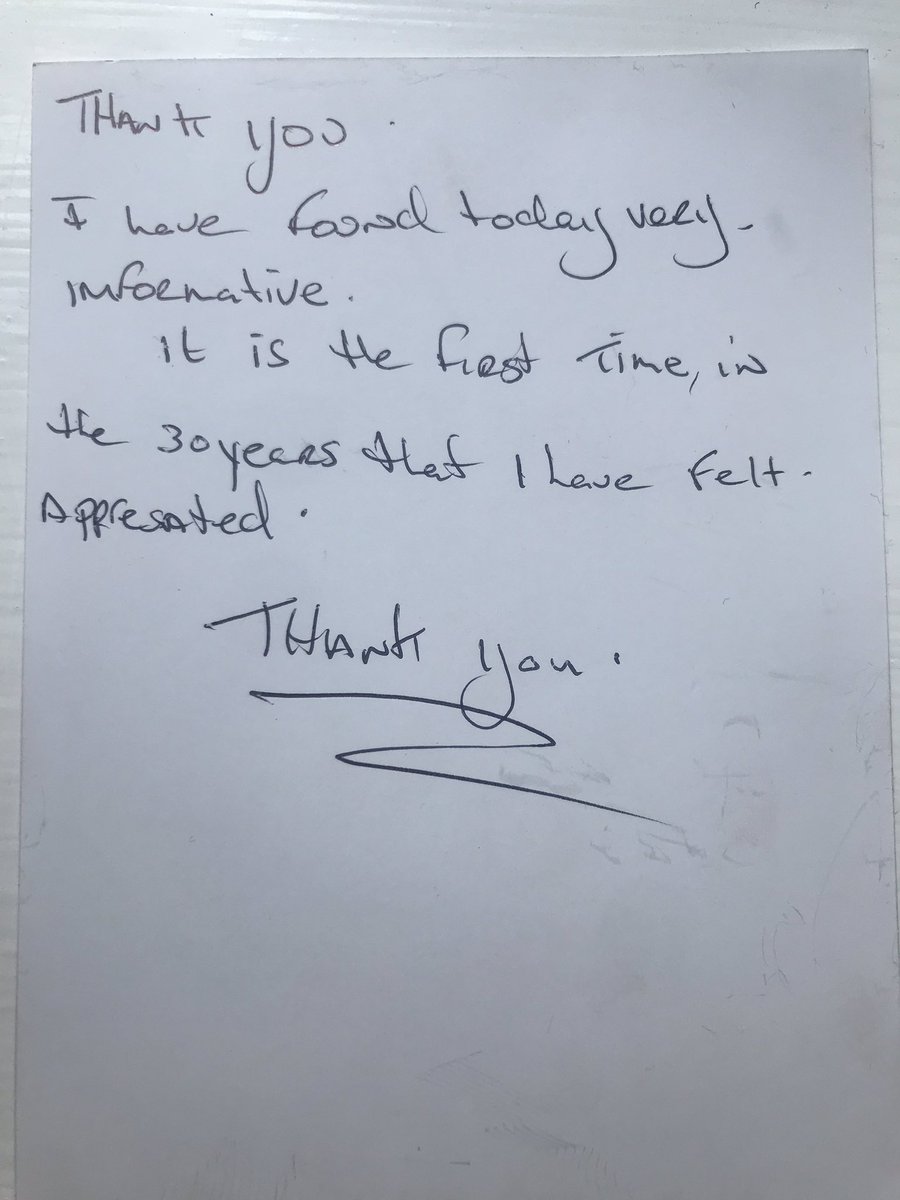 THANK you.
I have found today very.
informative.
it is the first Time, in
the 30 years that I have felt.
Appresated.
THANK you.